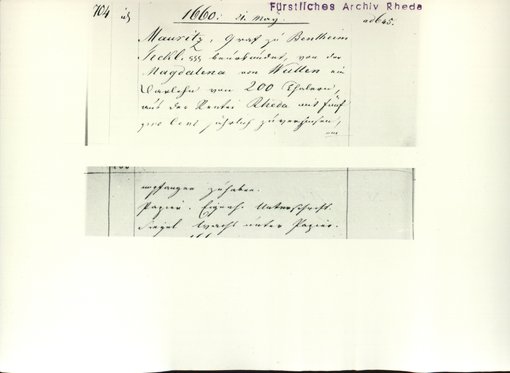 704 1660. 21. May Fürstliches Archiv Rheda
ad 645.
Mauritz, Graf zu Bentheim
Teckl. §§§ beurkundet, von der
Magdalena von Wullen ein
Darlehn von 200 Thalern,
aus der Rentei Rheda mit fünf
pro Cent jährlich zu verzinsen,
empfangen zu haben.
Papier. Eigenh. Unterschrift.
Siegel Wachs unter Papier.